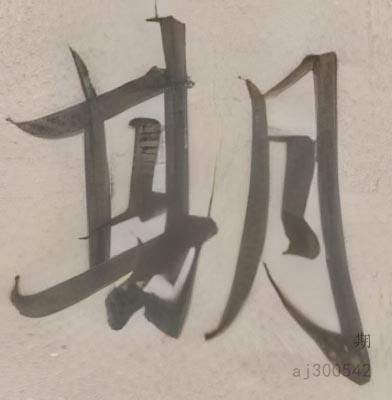 期
期
aj300542